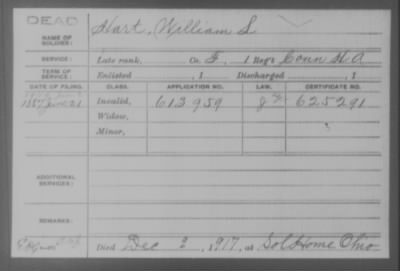 DEAD
NAME OF SOLDIER: Hart, William S
SERVICE: Late rank, Co. F, 1 Reg't Conn H. A
TERM OF SERVICE: Enlisted , 1 Discharged , 1
DATE OF FILING. CLASS. APPLICATION NO. LAW. CERTIFICATE NO.
1887 June 21 Invalid, 613959 625291
Widow,
Minor,
ADDITIONAL SERVICES:
REMARKS:
Died Dec 2, 1917, at Sol Home Ohio